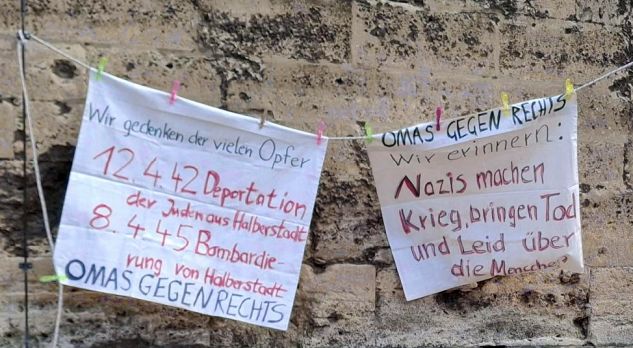 Wir gedenken der vielen Opfer
12.4.42 Deportation
der Juden aus Halberstadt
8.4.45 Bombardie-
rung von Halberstadt
OMAS GEGEN RECHTS
OMAS GEGEN RECHTS
Wir erinnern:
Nazis machen
Krieg, bringen Tod
und Leid über
die Menschen